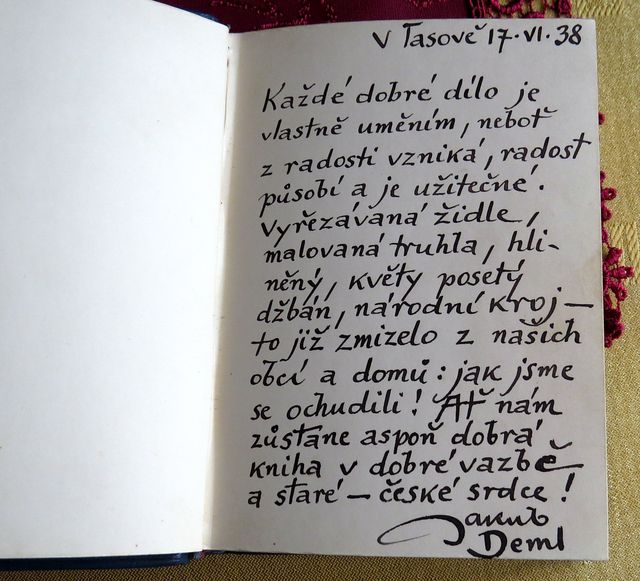 V Tasově 17·VI·38
Každé dobré dílo je
vlastně uměním, neboť
z radosti vzniká, radost
působí a je užitečné.
Vyřezávaná židle,
malovaná truhla, hli-
něný, květy posetý
džbán, národní kroj—
to již zmizelo z našich
obcí a domů: jak jsme
se ochudili! Ať nám
zůstane aspoň dobrá
kniha v dobré vazbě
a staré — české srdce!
Jakub
Deml